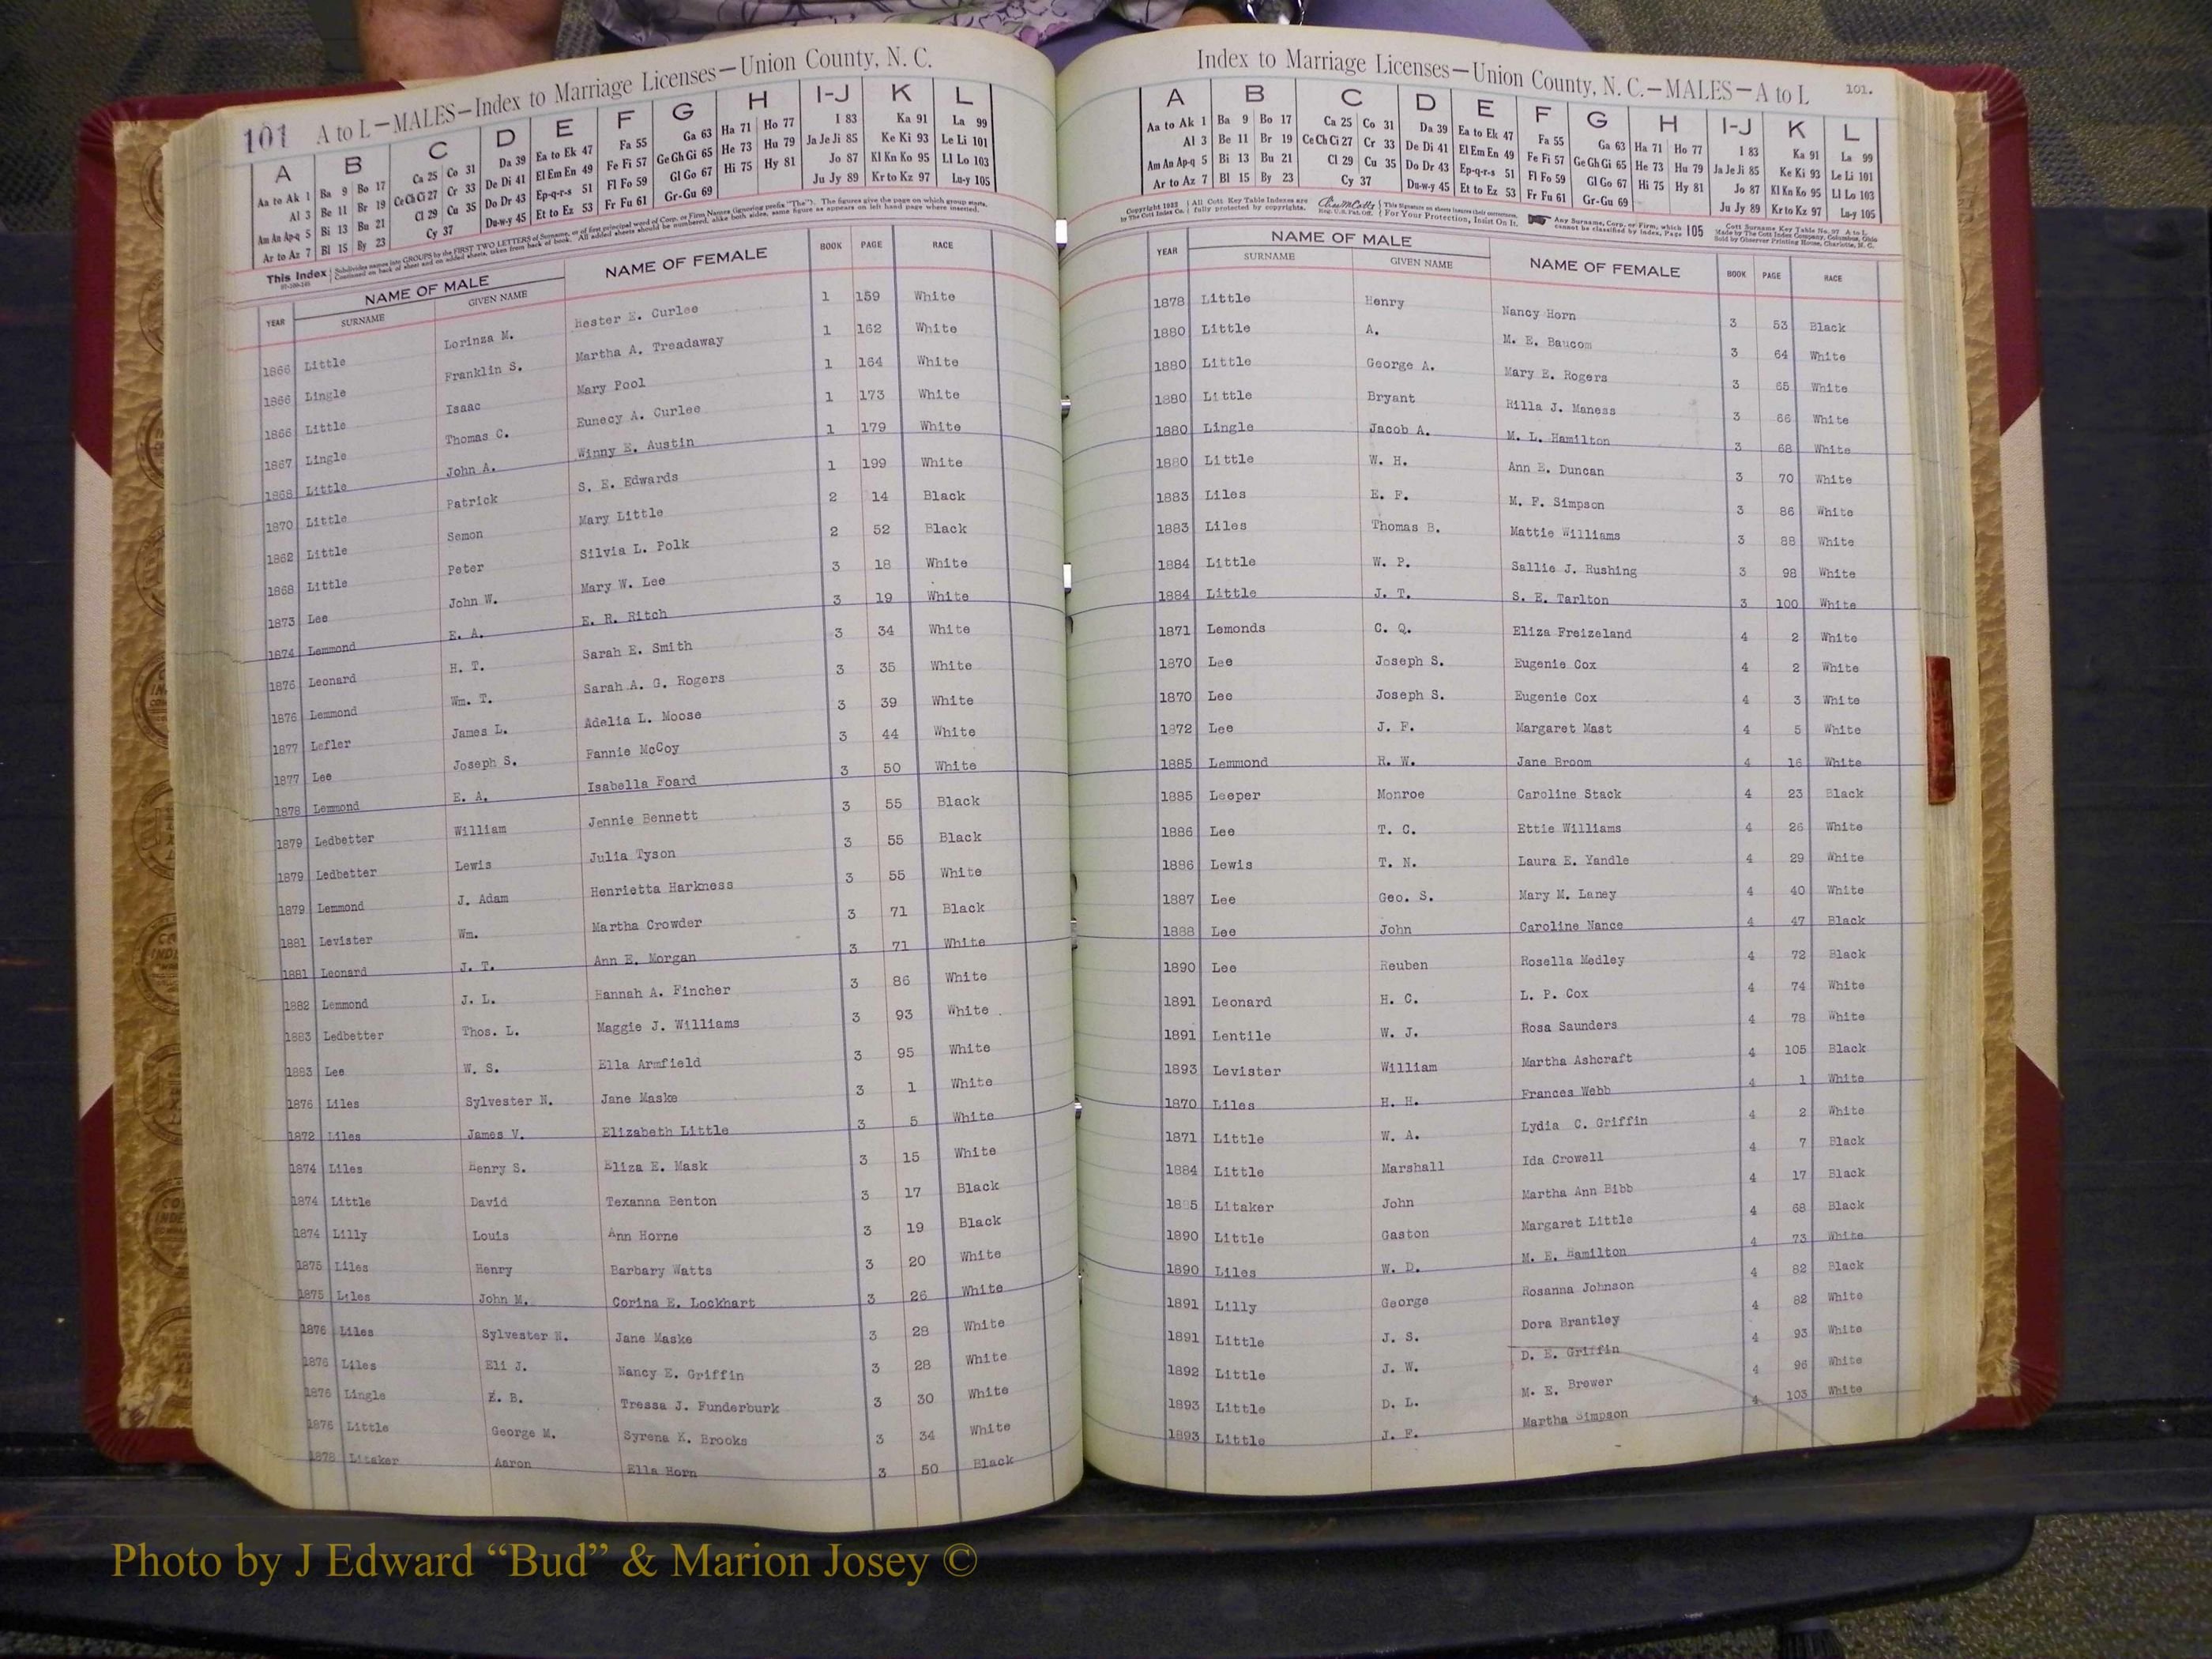 101 A to L—MALES—Index to Marriage Licenses—Union County, N. C.
A B C D E F G H I-J K L
Aa to Ak 1 Ba 9 Bo 17 Ca 25 Co 31 Da 39 Ea to Ek 47 Fa 55 Ga 63 Ha 71 Ho 77 I 83 Ka 91 La 99
Al 3 Be 11 Br 19 Ce Ch Ci 27 Cr 33 De Di 41 El Em En 49 Fe Fi 57 Ge Gh Gi 65 He 73 Hu 79 Ja Je Ji 85 Ke Ki 93 Le Li 101
Am An Ap-q 5 Bi 13 Bu 21 Cl 29 Cu 35 Do Dr 43 Ep-q-r-s 51 Fl Fo 59 Gl Go 67 Hi 75 Hy 81 Jo 87 Kl Kn Ko 95 Ll Lo 103
Ar to Az 7 Bl 15 By 23 Cy 37 Du-w-y 45 Et to Ez 53 Fr Fu 61 Gr-Gu 69 Ju Jy 89 Kr to Kz 97 Lu-y 105
This Index Subdivides names into GROUPS by the FIRST TWO LETTERS of Surname, or of first principal word of Corp. or Firm Names (ignoring prefix "The"). The figures give the page on which group starts.
Continued on back of sheet and on added sheets, taken from back of book. All added sheets should be numbered, alike both sides, same figure as appears on left hand page where inserted.
YEAR NAME OF MALE NAME OF FEMALE BOOK PAGE RACE
SURNAME GIVEN NAME
1866 Little Lorinza M. Hester E. Curlee 1 159 White
1866 Lingle Franklin S. Martha A. Treadaway 1 162 White
1866 Little Isaac Mary Pool 1 164 White
1867 Lingle Thomas C. Eunecy A. Curlee 1 173 White
1868 Little John A. Winny E. Austin 1 179 White
1870 Little Patrick S. E. Edwards 1 199 White
1862 Little Semon Mary Little 2 14 Black
1868 Little Peter Silvia L. Polk 2 52 Black
1873 Lee John W. Mary W. Lee 3 18 White
1874 Lemmond E. A. E. R. Ritch 3 19 White
1876 Leonard H. T. Sarah E. Smith 3 34 White
1876 Lemmond Wm. T. Sarah A. G. Rogers 3 35 White
1877 Lefler James L. Adelia L. Moose 3 39 White
1877 Lee Joseph S. Fannie McCoy 3 44 White
1878 Lemmond E. A. Isabella Foard 3 50 White
1879 Ledbetter William Jennie Bennett 3 55 Black
1879 Ledbetter Lewis Julia Tyson 3 55 Black
1879 Lemmond J. Adam Henrietta Harkness 3 55 White
1881 Levister Wm. Martha Crowder 3 71 Black
1881 Leonard J. T. Ann E. Morgan 3 71 White
1882 Lemmond J. L. Hannah A. Fincher 3 86 White
1883 Ledbetter Thos. L. Maggie J. Williams 3 93 White
1883 Lee W. S. Ella Armfield 3 95 White
1876 Liles Sylvester N. Jane Maske 3 1 White
1872 Liles James V. Elizabeth Little 3 5 White
1874 Liles Henry S. Eliza E. Mask 3 15 White
1874 Little David Texanna Benton 3 17 Black
1874 Lilly Louis Ann Horne 3 19 Black
1875 Liles Henry Barbary Watts 3 20 White
1875 Liles John M. Corina E. Lockhart 3 26 White
1876 Liles Sylvester N. Jane Maske 3 28 White
1876 Liles Eli J. Nancy E. Griffin 3 28 White
1876 Lingle E. B. Tressa J. Funderburk 3 30 White
1876 Little George M. Syrena K. Brooks 3 34 White
1878 Litaker Aaron Ella Horn 3 50 Black
Index to Marriage Licenses—Union County, N. C.—MALES—A to L 101.
A B C D E F G H I-J K L
Aa to Ak 1 Ba 9 Bo 17 Ca 25 Co 31 Da 39 Ea to Ek 47 Fa 55 Ga 63 Ha 71 Ho 77 I 83 Ka 91 La 99
Al 3 Be 11 Br 19 Ce Ch Ci 27 Cr 33 De Di 41 El Em En 49 Fe Fi 57 Ge Gh Gi 65 He 73 Hu 79 Ja Je Ji 85 Ke Ki 93 Le Li 101
Am An Ap-q 5 Bi 13 Bu 21 Cl 29 Cu 35 Do Dr 43 Ep-q-r-s 51 Fl Fo 59 Gl Go 67 Hi 75 Hy 81 Jo 87 Kl Kn Ko 95 Ll Lo 103
Ar to Az 7 Bl 15 By 23 Cy 37 Du-w-y 45 Et to Ez 53 Fr Fu 61 Gr-Gu 69 Ju Jy 89 Kr to Kz 97 Lu-y 105
Copyright 1922 by The Cott Index Co. All Cott Key Table Indexes are fully protected by copyrights. Reg. U.S. Pat. Off. This Signature on sheets insures their correctness. For Your Protection, Insist On It. Any Surname, Corp. or Firm, which cannot be classified by Index, Page 105 Cott Surname Key Table No. 97 A to L
Made by The Cott Index Company, Columbus, Ohio
Sold by Observer Printing House, Charlotte, N. C.
YEAR NAME OF MALE NAME OF FEMALE BOOK PAGE RACE
SURNAME GIVEN NAME
1878 Little Henry Nancy Horn 3 53 Black
1880 Little A. M. E. Baucom 3 64 White
1880 Little George A. Mary E. Rogers 3 65 White
1880 Little Bryant Rilla J. Maness 3 66 White
1880 Lingle Jacob A. M. L. Hamilton 3 68 White
1880 Little W. H. Ann E. Duncan 3 70 White
1883 Liles E. F. M. F. Simpson 3 86 White
1883 Liles Thomas B. Mattie Williams 3 88 White
1884 Little W. P. Sallie J. Rushing 3 98 White
1884 Little J. T. S. E. Tarlton 3 100 White
1871 Lemonds C. Q. Eliza Freizeland 4 2 White
1870 Lee Joseph S. Eugenie Cox 4 2 White
1870 Lee Joseph S. Eugenie Cox 4 3 White
1872 Lee J. F. Margaret Mast 4 5 White
1885 Lemmond R. W. Jane Broom 4 16 White
1885 Leeper Monroe Caroline Stack 4 23 Black
1886 Lee T. C. Ettie Williams 4 26 White
1886 Lewis T. N. Laura E. Yandle 4 29 White
1887 Lee Geo. S. Mary M. Laney 4 40 White
1888 Lee John Caroline Nance 4 47 Black
1890 Lee Reuben Rosella Medley 4 72 Black
1891 Leonard H. C. L. P. Cox 4 74 White
1891 Lentile W. J. Rosa Saunders 4 78 White
1893 Levister William Martha Ashcraft 4 105 Black
1870 Liles H. H. Frances Webb 4 1 White
1871 Little W. A. Lydia C. Griffin 4 2 White
1884 Little Marshall Ida Crowell 4 7 Black
1885 Litaker John Martha Ann Bibb 4 17 Black
1890 Little Gaston Margaret Little 4 68 Black
1890 Liles W. D. M. E. Hamilton 4 73 White
1891 Lilly George Rosanna Johnson 4 82 Black
1891 Little J. S. Dora Brantley 4 82 White
1892 Little J. W. D. E. Griffin 4 93 White
1893 Little D. L. M. E. Brewer 4 96 White
1893 Little J. F. Martha Simpson 4 103 White
Photo by J Edward “Bud” & Marion Josey ©